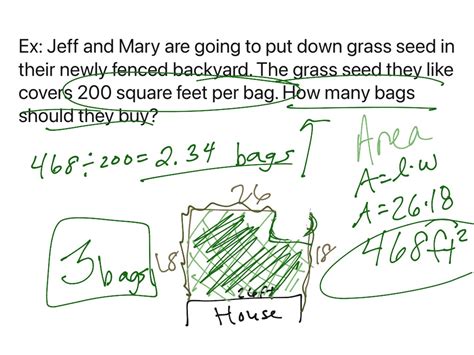 Ex: Jeff and Mary are going to put down grass seed in
their newly fenced backyard. The grass seed they like
covers 200 square feet per bag. How many bags
should they buy?
468÷200=2.34 bags
Area
A=l·w
A=26·18
468ft²
26
18
18
26ft
House
3 bags